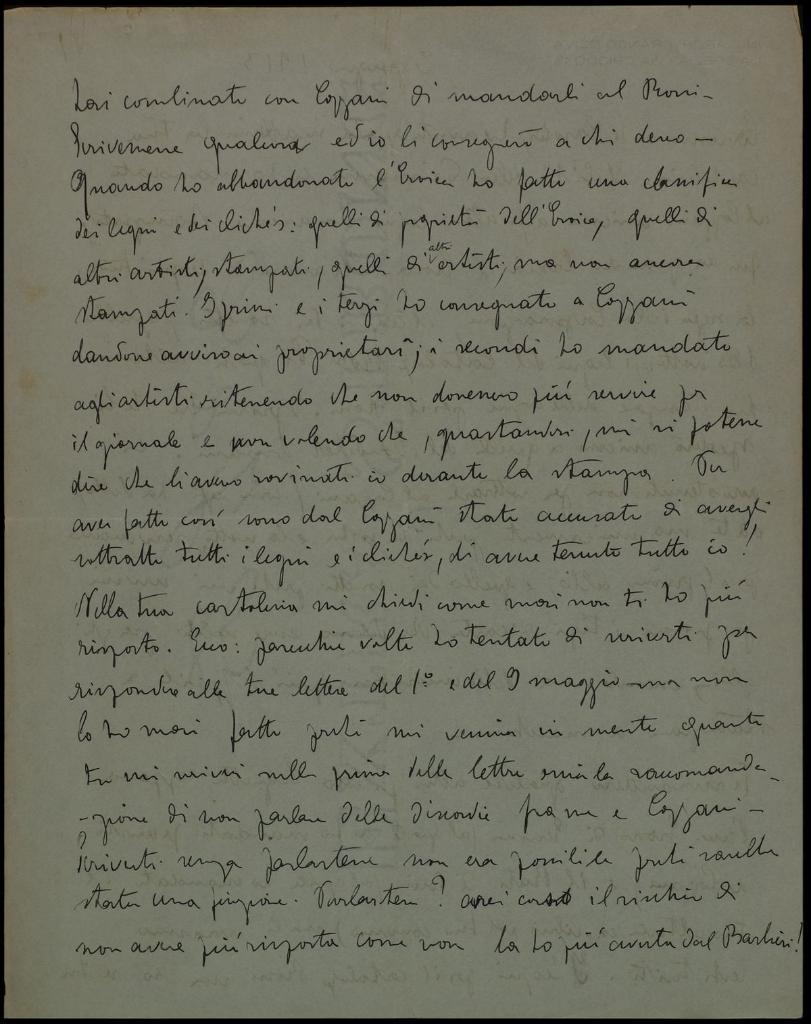 hai combinato con Cozzani di mandarli al Rossi –
Scrivemene qualcosa ed io li consegnerò a chi devo –
Quando ho abbandonato l'Eroica ho fatto una classifica
dei legni e dei clichés: quelli di proprietà dell'Eroica, quelli di
altri artisti, stampati, quelli di altri artisti, ma non ancora
stampati. I primi e i terzi ho consegnato a Cozzani
dandone avviso ai proprietari; i secondi ho mandato
agli artisti ritenendo che non dovessero più servire per
il giornale e non volendo che, guastandosi, mi si potesse
dire che li avevo rovinati io durante la stampa. Per
aver fatto così sono dal Cozzani stato accusato di avergli
sottratto tutti i legni e i clichés, di avere tenuto tutto io!
Nella tua cartolina mi chiedi come mai non ti ho più
risposto. Ecco: parecchie volte ho tentato di scriverti per
rispondere alle tue lettere del 1º e del 9 maggio ma non
lo ho mai fatto perché mi veniva in mente quanto
tu mi scrivi nella prima delle lettere ossia la raccomanda-
-zione di non parlare delle discordie fra me e Cozzani –
Scriverti senza parlartene non era possibile perché sarebbe
stata una finzione. Parlartene? avrei corso il rischio di
non avere più risposta come non la ho più avuta dal Barbieri!